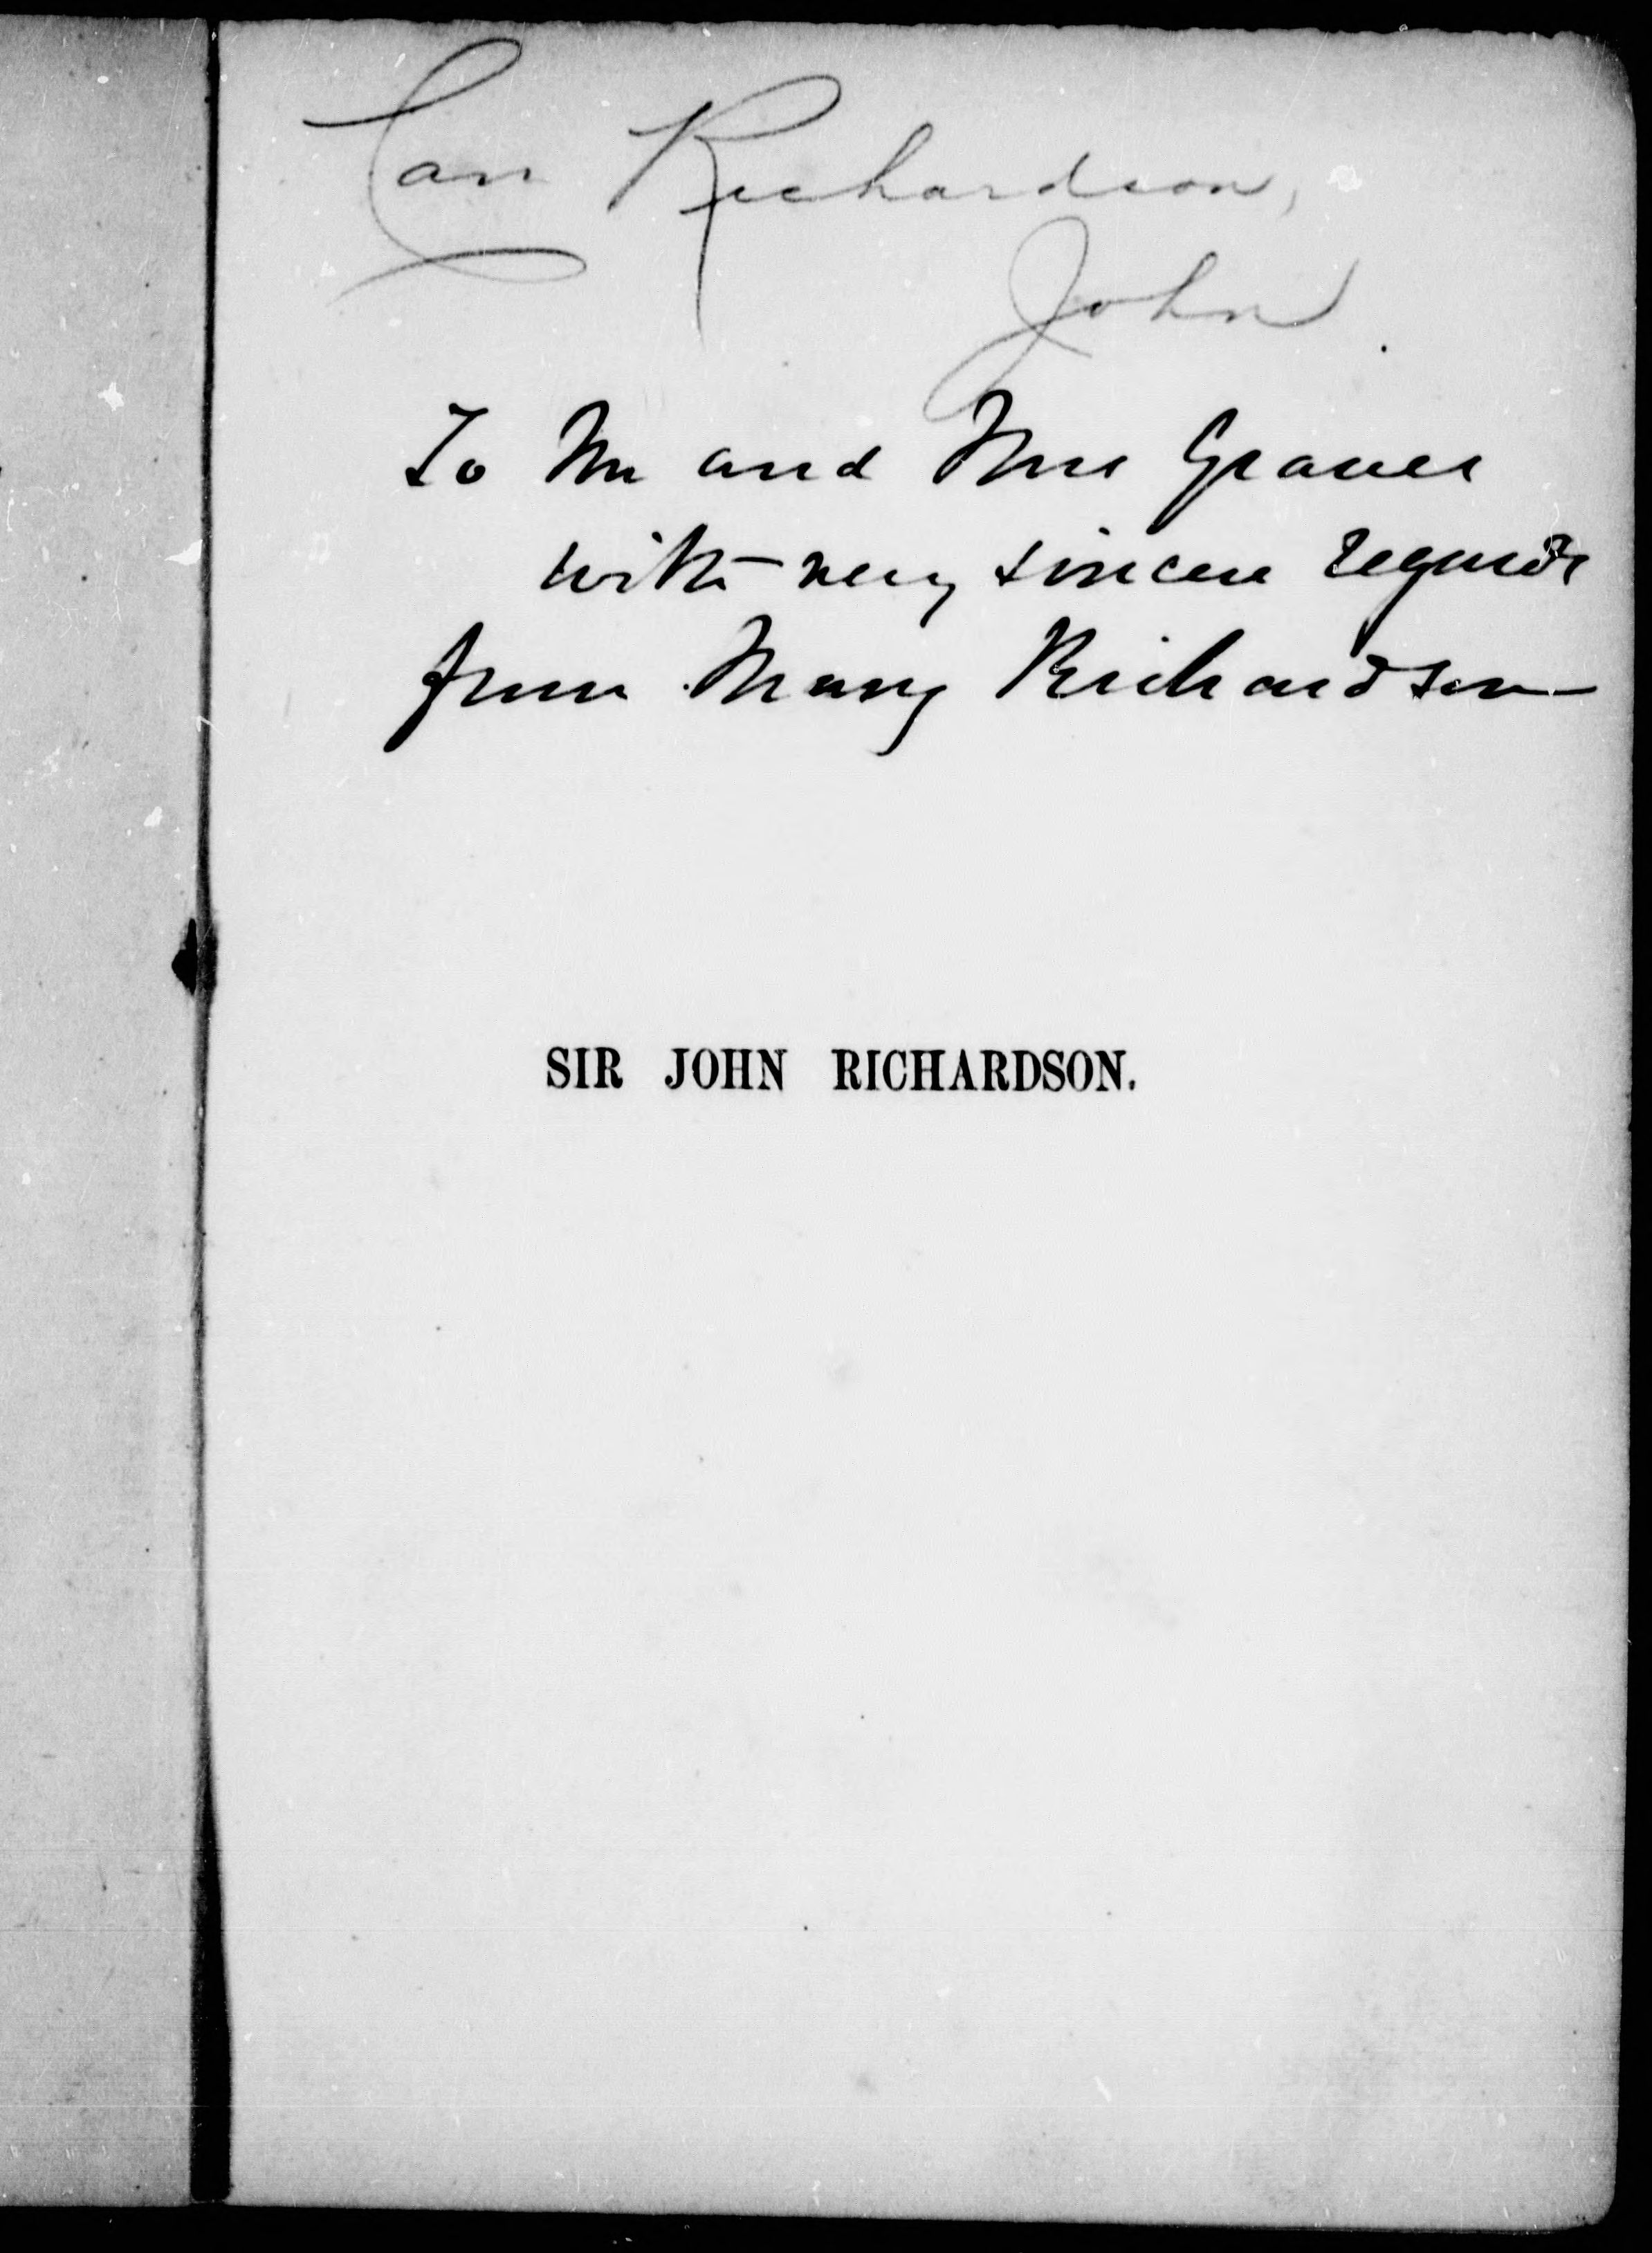 Can Richardson,
John
To Mr and Mrs Graves
with very sincere regards
from Mary Richardson
SIR JOHN RICHARDSON.